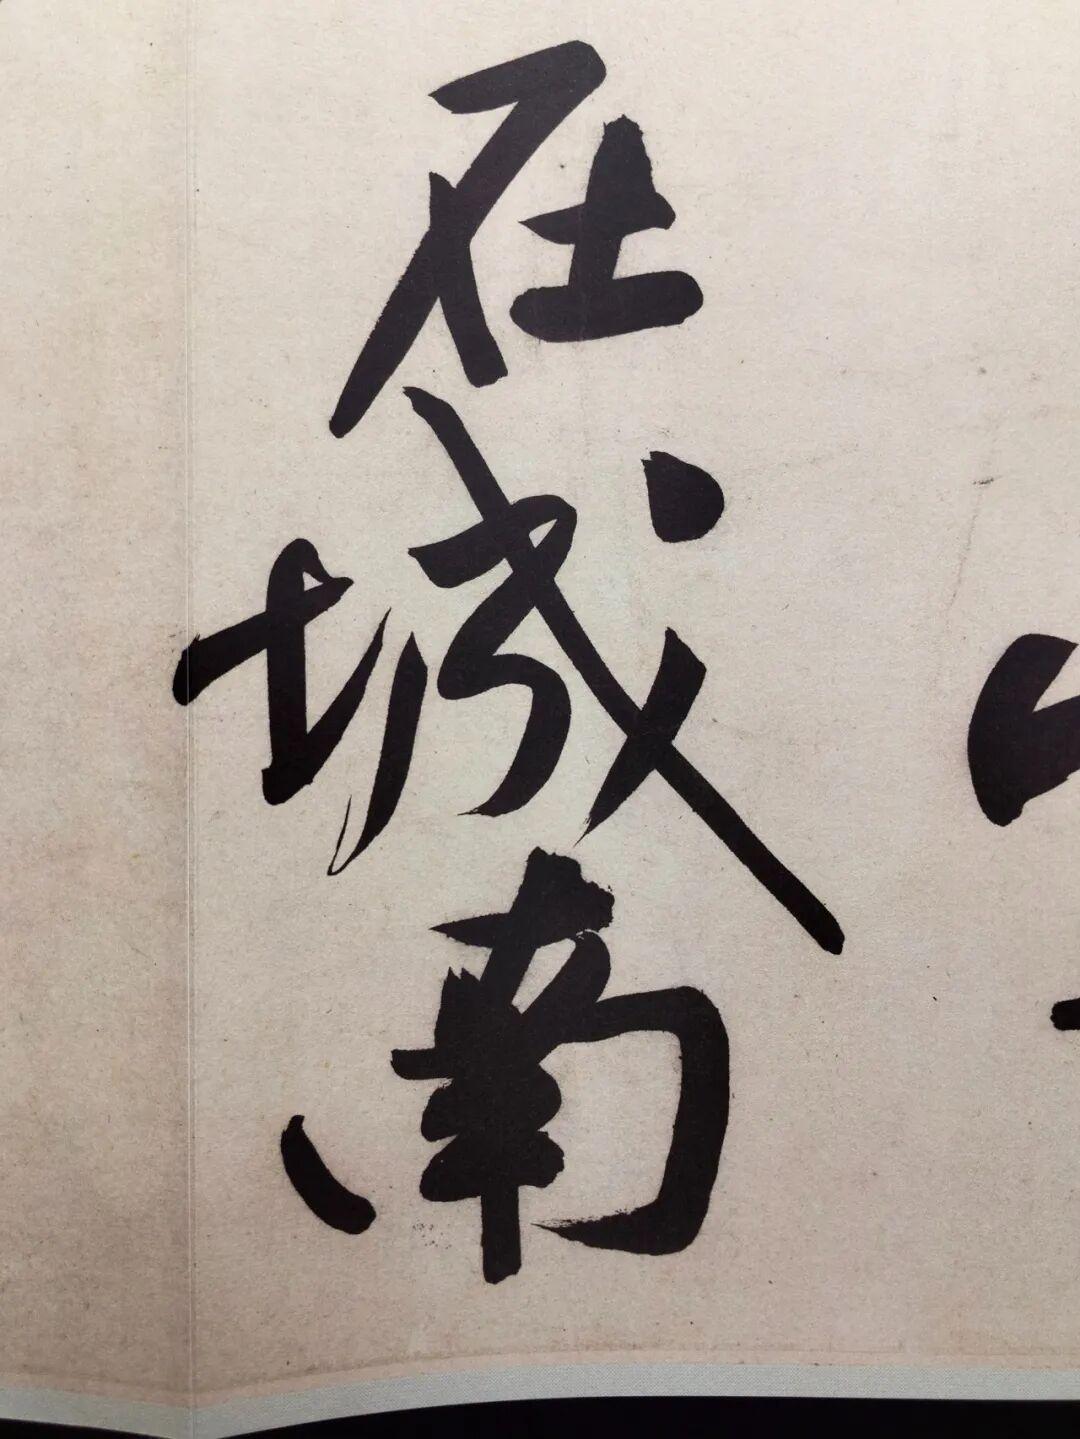 在城南